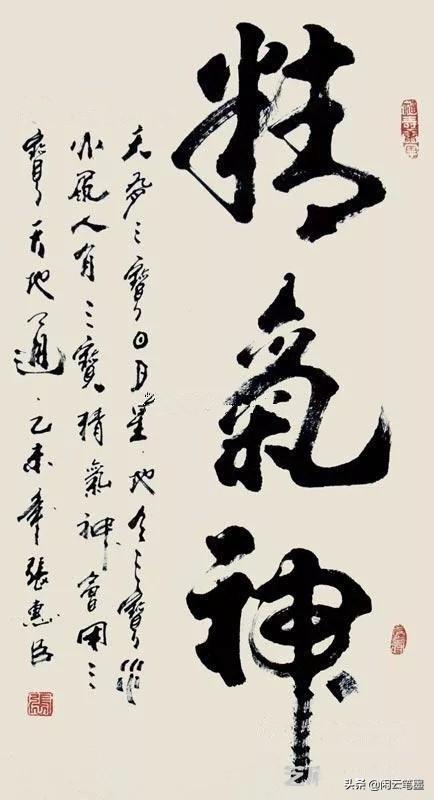 精氣神
天有三寶日月星地有三寶水
火風人有三寶精氣神會用三
寶天地通乙未年張惠臣
头条 @闲云笔墨